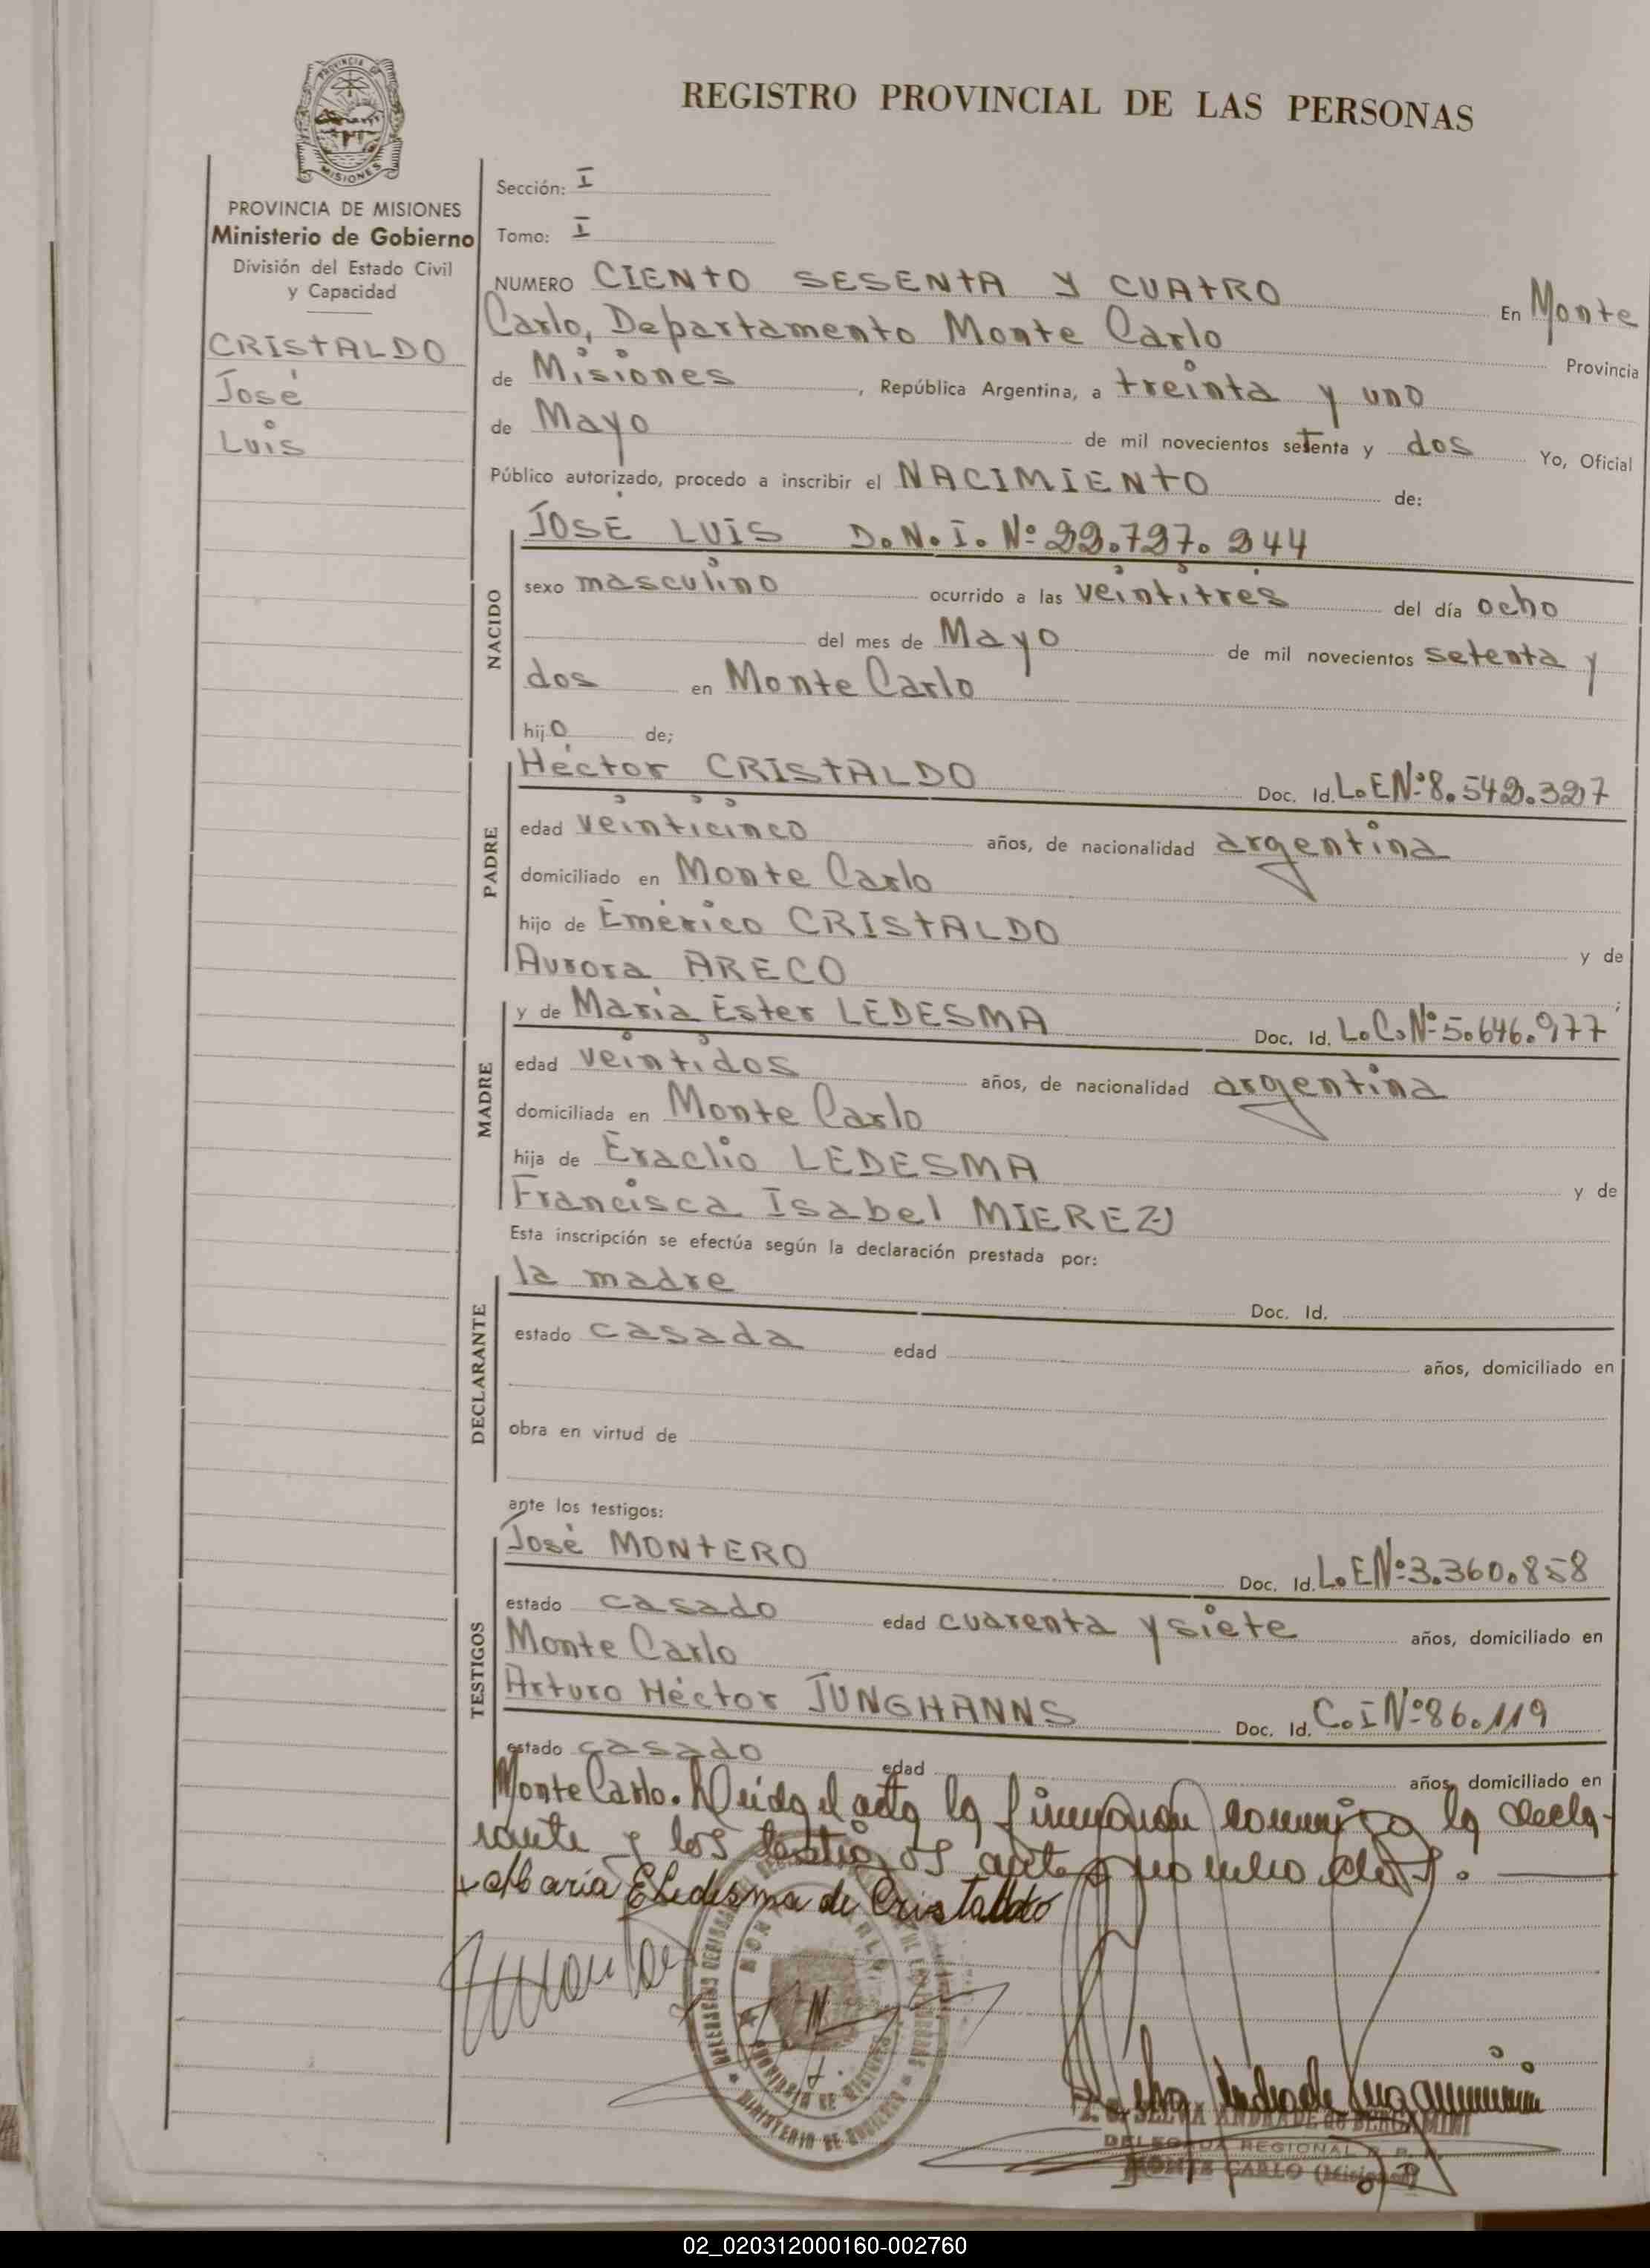 REGISTRO PROVINCIAL DE LAS PERSONAS
PROVINCIA DE
MISIONES
PROVINCIA DE MISIONES
Ministerio de Gobierno
División del Estado Civil
y Capacidad
CRISTALDO
José
Luis
Sección: I
Tomo: I
NUMERO CIENTO SESENTA Y CUATRO En Monte
Carlo, Departamento Monte Carlo Provincia
de Misiones, República Argentina, a treinta y uno
de Mayo de mil novecientos setenta y dos Yo, Oficial
Público autorizado, procedo a inscribir el NACIMIENTO de:
NACIDO
JOSÉ LUIS D.N.I. Nº 22.727.244
sexo masculino ocurrido a las veintitres del día ocho
del mes de Mayo de mil novecientos setenta y
dos en Monte Carlo
hijo de;
PADRE
Héctor CRISTALDO Doc. Id. L.E Nº 8.542.327
edad veinticinco años, de nacionalidad argentina
domiciliado en Monte Carlo
hijo de Emérico CRISTALDO y de
Aurora ARECO
MADRE
y de María Ester LEDESMA Doc. Id. L.C. Nº 5.646.977
edad veintidos años, de nacionalidad argentina
domiciliada en Monte Carlo
hija de Eraclio LEDESMA y de
Francisca Isabel MIEREZ
Esta inscripción se efectúa según la declaración prestada por:
DECLARANTE
la madre Doc. Id.
estado casada edad años, domiciliado en
obra en virtud de
ante los testigos:
TESTIGOS
José MONTERO Doc. Id. L.E Nº 3.360.858
estado casado edad cuarenta y siete años, domiciliado en
Monte Carlo
Arturo Héctor JUNGHANNS Doc. Id. C.I Nº 86.119
estado casado edad años, domiciliado en
Monte Carlo. Leida el acta la firmaron conmigo la decla-
rante y los testigos ante
María E Ledesma de Cristaldo
MINISTERIO DE GOBIERNO
PROVINCIA DE MISIONES
SELVA ANDRADE de BERGAMINI
DELEGADA REGIONAL R. P.
MONTE CARLO (Misiones)
02_020312000160-002760